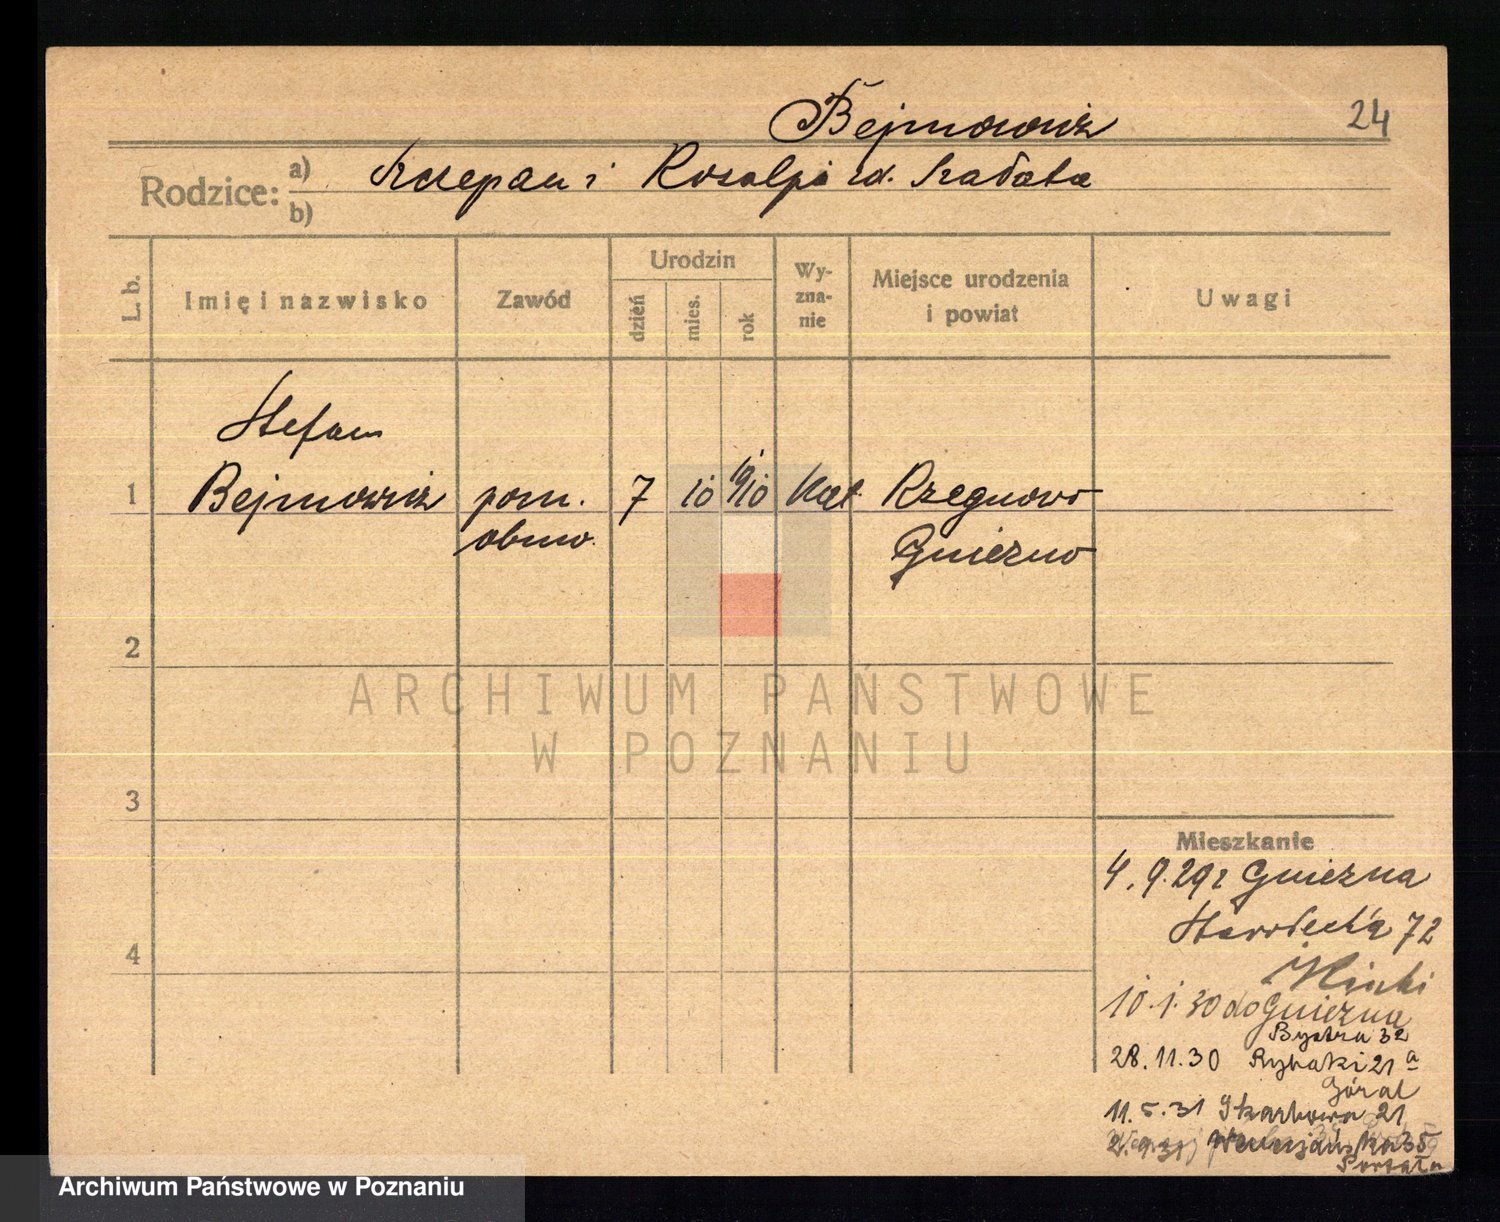 Bejmowicz
24
Rodzice: a) Szczepan i Rozalja zd. Szałata
b)
L. b.
Imię i nazwisko
Zawód
Urodzin
dzień
mies.
rok
Wy-
zna-
nie
Miejsce urodzenia
i powiat
Uwagi
Stefan
1 Bejmowicz pom. 7 10 1910 kat. Rzegnowo
obuw. Gniezno
2
ARCHIWUM PAŃSTWOWE
W POZNANIU
3
4
Mieszkanie
4. 9. 29 z Gniezna
72
10. 1. 30 do Gniezna
Bystra 32
28. 11. 30 Rybaki 21a
Góral
11. 5. 31 Skarbowa 21
35
Archiwum Państwowe w Poznaniu